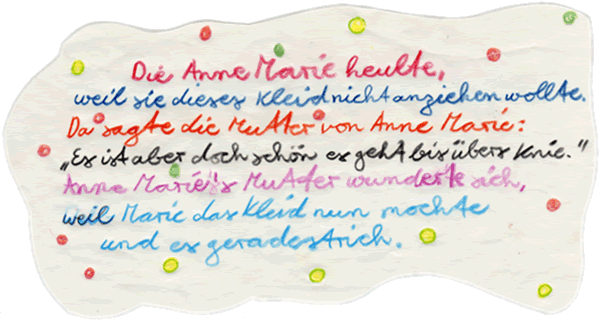 Die Anne Marie heulte,
weil sie dieses Kleid nicht anziehen wollte.
Da sagte die Mutter von Anne Marie:
„Es ist aber doch schön es geht bis übers Knie."
Anne Marie's Mutter wunderte sich,
weil Marie das Kleid nun mochte
und es geradestrich.